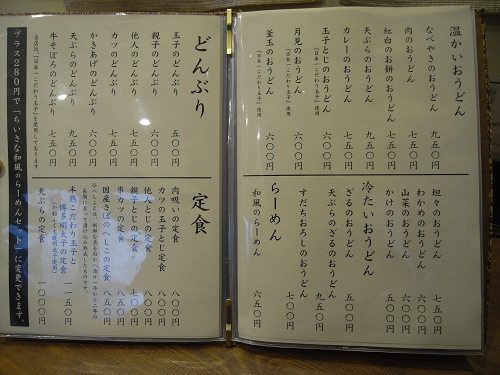 温かいおうどん
なべやきのおうどん 九五〇円
肉のおうどん 七五〇円
紅白のお餅のおうどん 七五〇円
天ぷらのおうどん 九五〇円
カレーのおうどん 七五〇円
玉子とじのおうどん 六〇〇円
「日本一こだわり玉子」使用
月見のおうどん 六〇〇円
「日本一こだわり玉子」使用
釜玉のおうどん 六〇〇円
「日本一こだわり玉子」使用
坦々のおうどん 七五〇円
わかめのおうどん 六〇〇円
山菜のおうどん 六〇〇円
かけのおうどん 五〇〇円
冷たいおうどん
ざるのおうどん 五〇〇円
天ぷらのざるのおうどん 九五〇円
すだちおろしのおうどん 七〇〇円
らーめん
和風のらーめん 六五〇円
どんぶり
玉子のどんぶり 五〇〇円
親子のどんぶり 六〇〇円
他人のどんぶり 七五〇円
カツのどんぶり 七五〇円
かきあげのどんぶり 六〇〇円
天ぷらのどんぶり 七五〇円
牛そぼろのどんぶり 七五〇円
当店は、「日本一こだわり玉子」を使用しております。
定食
肉吸いの定食 八〇〇円
カツの玉子とじ定食 八〇〇円
他人とじの定食 八〇〇円
親子とじの定食 七〇〇円
串カツの定食 八五〇円
国産さばのへしこの定食 八五〇円
半熟こだわり玉子と
博多明太子の定食 一一五〇円
天ぷらの定食 一〇〇〇円
プラス280円で「ちいさな和風のらーめんセット」に変更できます。